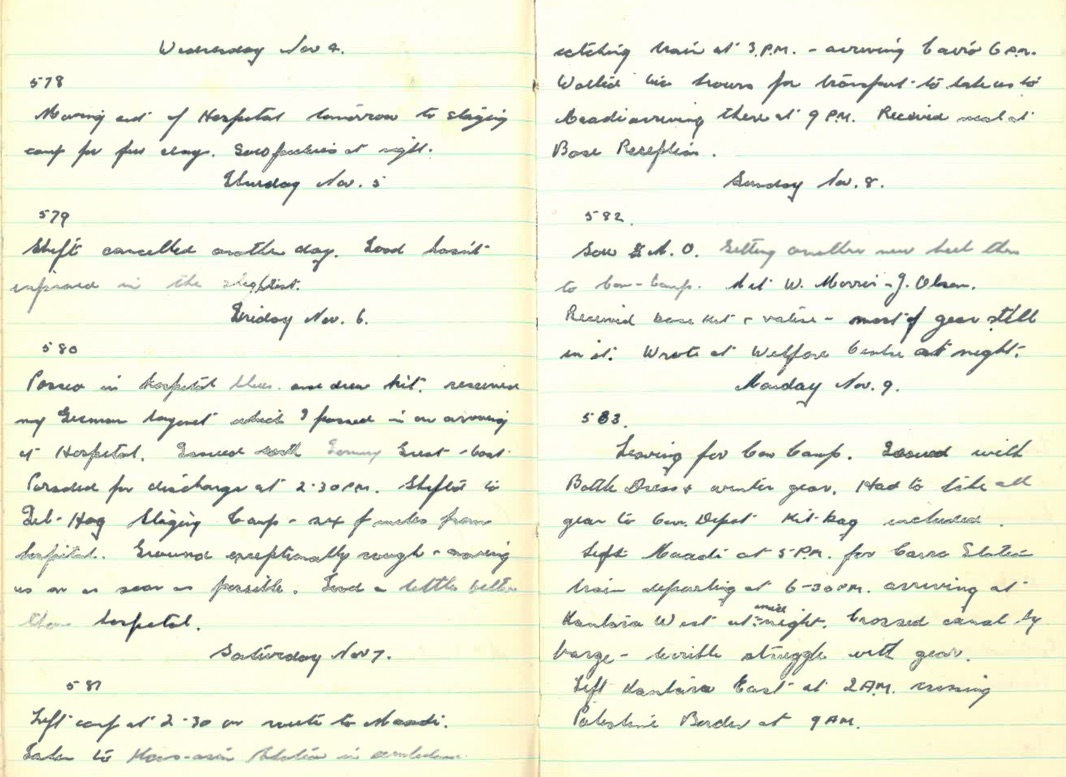 Wednesday Nov 4.
578
Moving out of Hospital tomorrow to staging
camp for few days. Saw pictures at night.
Thursday Nov. 5
579
Shift cancelled another day. Food hasn't
improved in the slightest.
Friday Nov. 6.
580
Passed in hospital blues and drew kit. received
my German bayonet which I passed in on arriving
at Hospital. Issued with Tommy Great-Coat.
Paraded for discharge at 2.30 P.M. Shifted to
Staging Camp - six miles from
hospital. Ground exceptionally rough - moving
us on as soon as possible. Food a little better
than hospital.
Saturday Nov 7.
581
Left camp at 2.30 en route to Maadi.
Taken to Station in ambulance
catching train at 3 P.M. - arriving Cairo 6 P.M.
Waited hours for transport to take us to
Maadi arriving there at 9 P.M. Received meal at
Base Reception.
Sunday Nov. 8.
582.
Saw M.O. Getting another new then
to Con-Camp. Met W. Morris - J. Olsen.
Received base kit & valise - most of gear still
in it. Wrote at Welfare Centre at night.
Monday Nov. 9.
583.
Leaving for Con Camp. Issued with
Battle Dress & winter gear. Had to take all
gear to Con. Depot Kit-bag included.
Left Maadi at 5 P.M. for Cairo Station
train departing at 6-30 P.M. arriving at
Kantara West at midnight. Crossed canal by
barge - terrible struggle with gear.
Left Kantara East at 2 A.M. crossing
Palestine Border at 9 A.M.